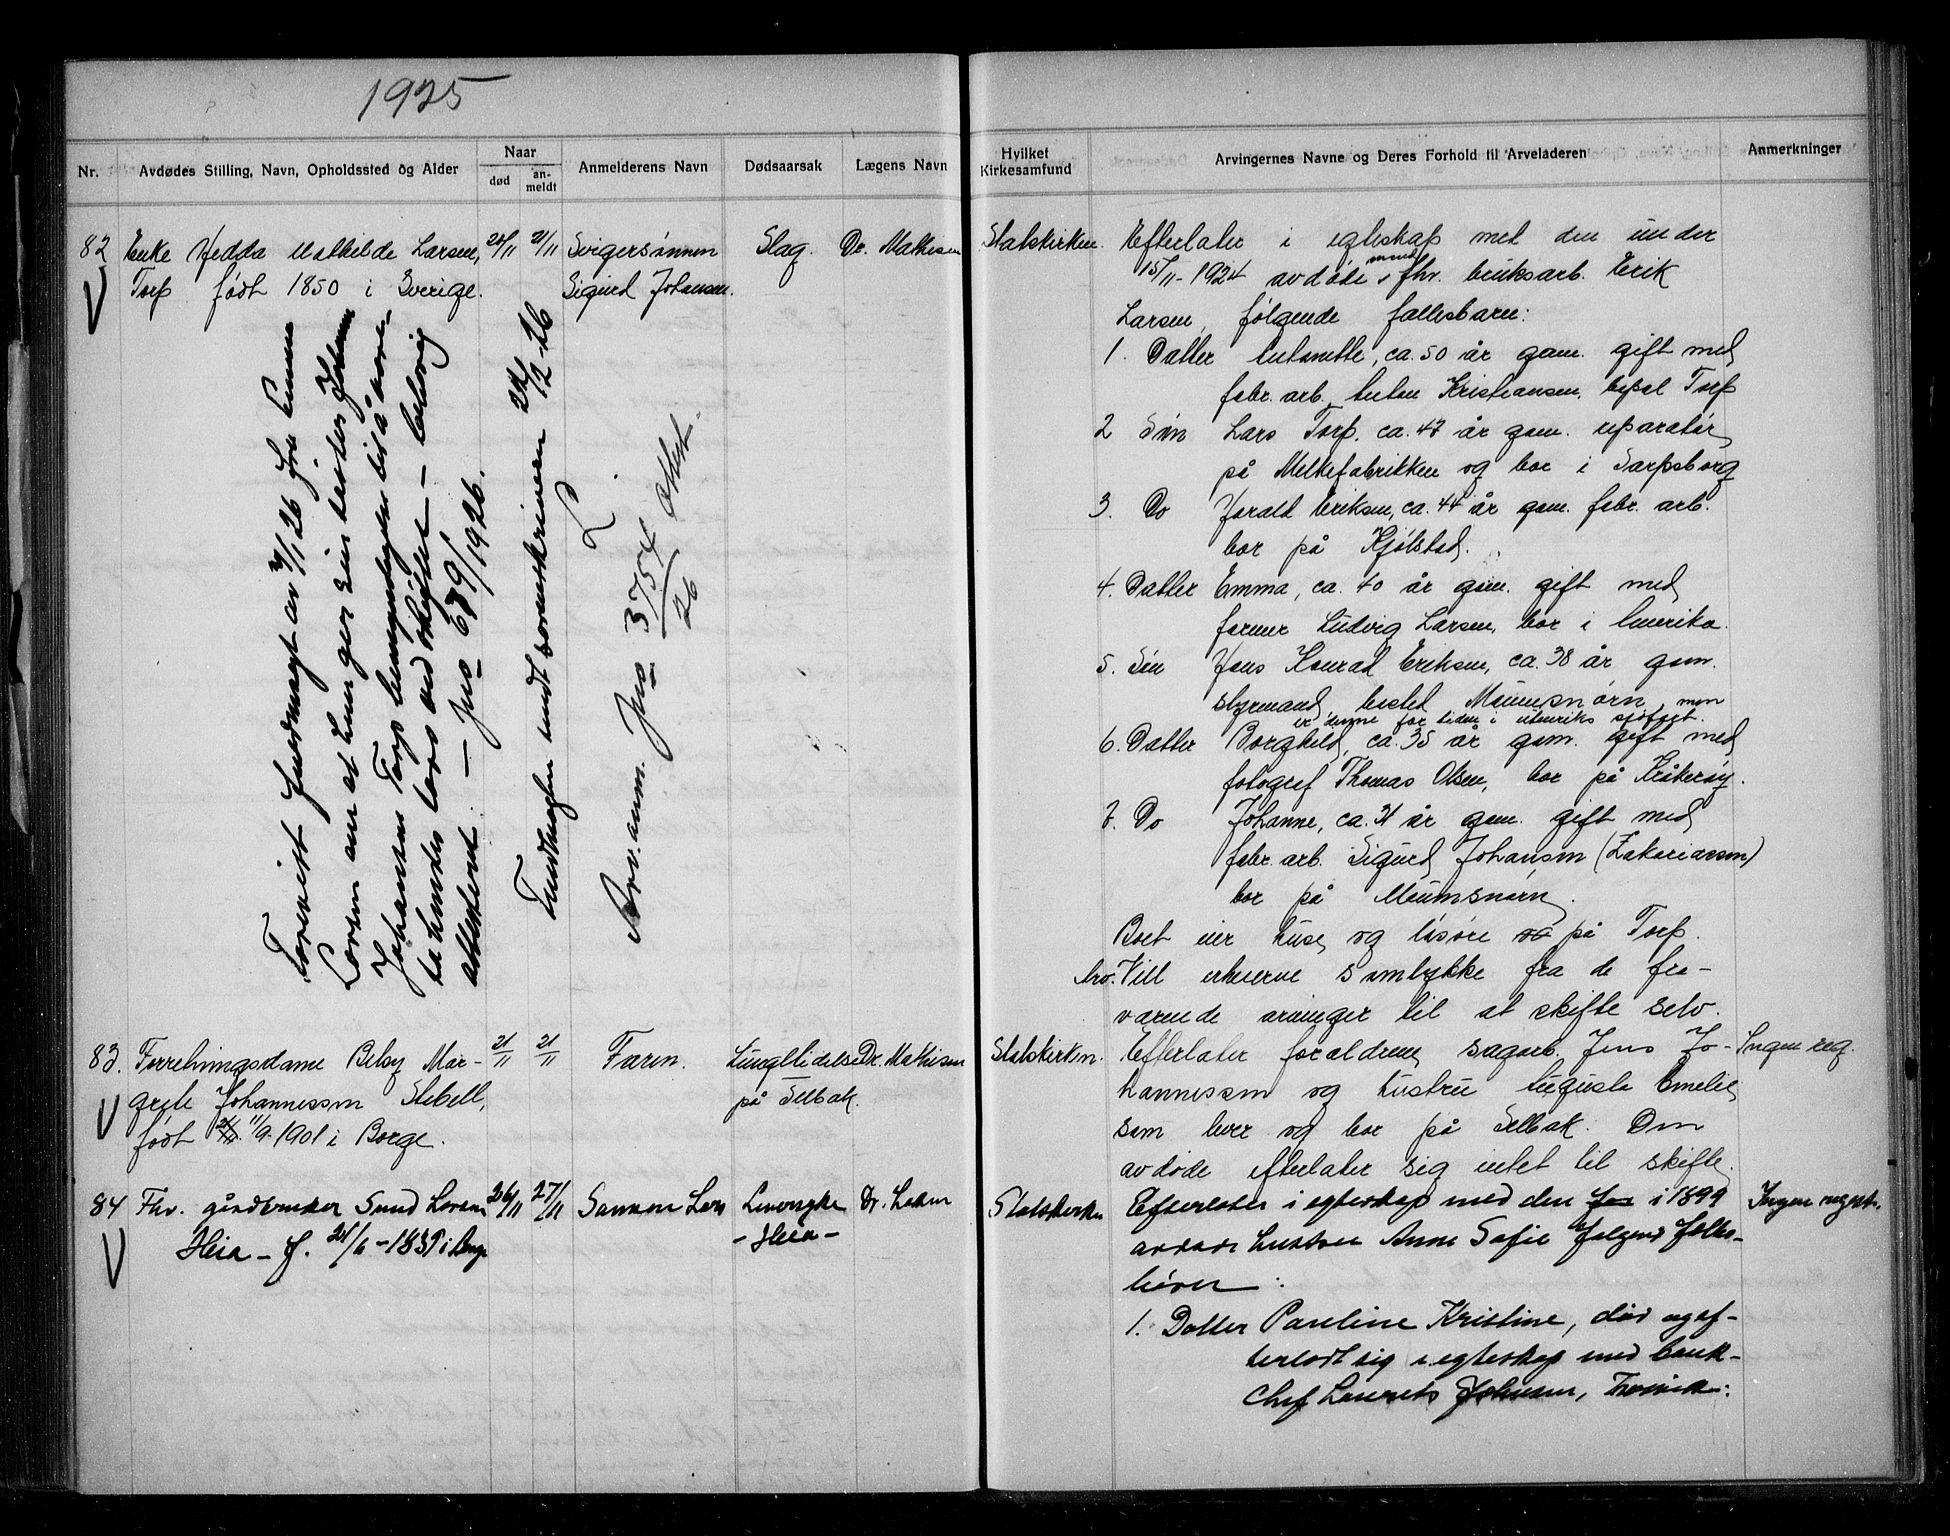 1925
Nr.
Avdødes Stilling, Navn, Opholdssted og Alder
Naar
død
an-
meldt
Anmelderens Navn
Dødsaarsak
Lægens Navn
Hvilket
Kirkesamfund
Arvingernes Navne og Deres Forhold til Arveladeren
Anmerkninger
82 Enke Hedda Mathilde Larsen,
Torp født 1850 i Sverige.
20/11 21/11
Svigersønnen
Sigurd Johansen.
Slag.
Dr. Mathisen
Statskirken.
Efterlater i egteskap met den under
15/11-1924 avdøde mand, fhv. bruksarb. Erik
Larsen, følgende fællesbarn:
1. Datter Antonette, ca. 50 år gam. gift med
fabr. arb. Anton Kristiansen, bopæl Torp
2 Søn Lars Torp. ca. 47 år gam. reparatør
på Melkefabrikken og bor i Sarpsborg
3. Do Harald Eriksen, ca. 44 år gam. fabr. arb.
bor på Kjølstad.
4. Datter Emma, ca. 40 år gam. gift med
farmer Ludvig Larsen, bor i Amerika.
5. Søn Hans Konrad Eriksen, ca. 38 år gam.
styrmand, bosted Moumsnørn, men
er denne for tiden i utenriks sjøfart.
6. Datter Borghild, ca. 35 år gam. gift med
fotograf Thomas Olsen, bor på Kråkerøy.
7. Do Johanne, ca. 31 år gam. gift med
fabr. arb. Sigurd Johansen (Zakariassen)
bor på Moumsnørn.
Boet eier huse og løsøre på Torp.
Arv. Vill erhverve samtykke fra de fra-
værende arvinger til at skifte selv.
Forevist fuldmagt av /1 26 fra Emma
Larsen om at hun gir sin søster Johanne
Johansen Torp bemyndigelse til å vare-
ta hendes tarv ved skiftet –
attestert. – Jno 689/1926.
Fuldmagten sendt sorenskriveren 24/12-26
Arv. anm. Jno 3754/26 Attest.
83. Forretningsdame Betsy Mar-
grete Johannessen Stebell,
født 11/9 1901 i Borge.
21/11 21/11
Faren.
Lungelidelse
på Selbak.
Dr. Mathisen
Statskirken.
Efterlater forældrene, sagarb. Jens Jo-
hannessen og hustru Auguste Emelie,
som lever og bor på Selbak. Den
avdøde efterlater sig intet til skifte.
Ingen reg.
84 Fhv. gårdbruker Svend Larsen
Heia – f. 21/6-1839 i Borge
26/11 27/11
Sønnen Lars
– Heia –
Dr. Lahm
Statskirken
Efterlater i egteskap med den i 1899
avdøde hustru Anne Sofie følgend fælles-
børn:
1. Datter Pauline Kristine, død og ef-
terlodt sig i egteskap med bank-
chef Laurits Johnsen,
Ingen regst.